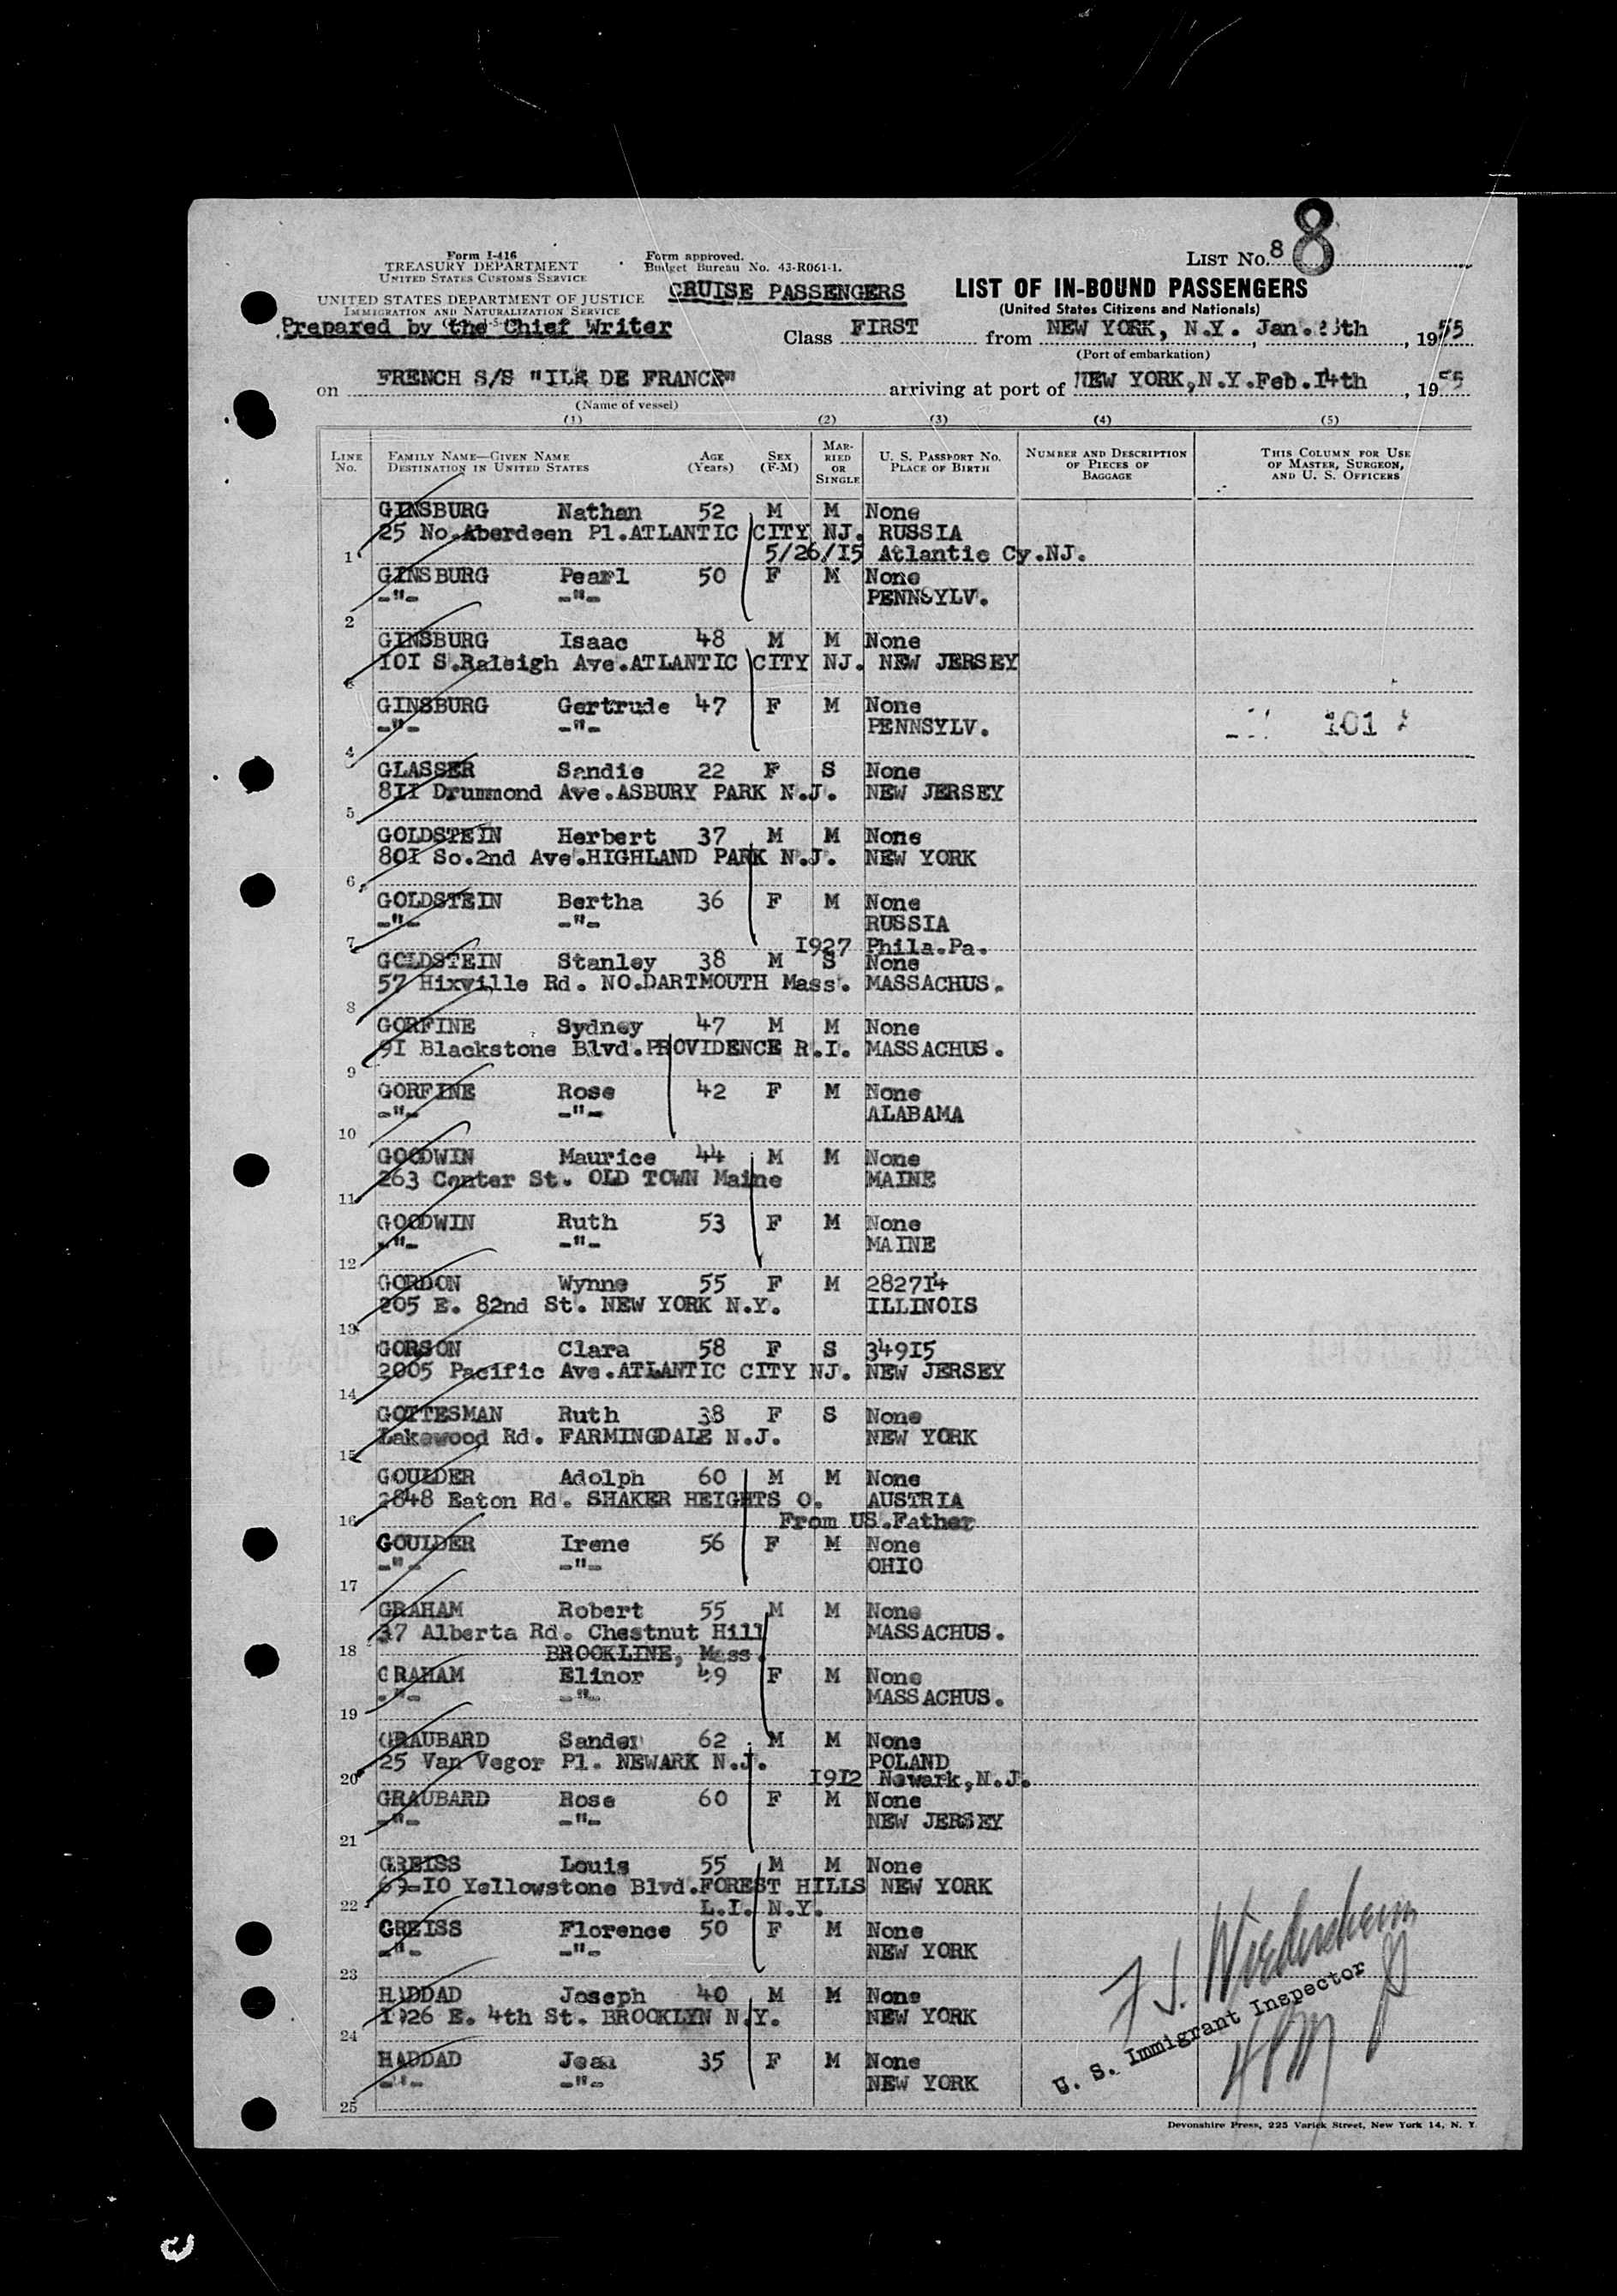 LIST NO. 8 8
Form I-416
TREASURY DEPARTMENT
UNITED STATES CUSTOMS SERVICE
Form approved.
Budget Bureau No. 43-R061-1.
UNITED STATES DEPARTMENT OF JUSTICE
IMMIGRATION AND NATURALIZATION SERVICE
CRUISE PASSENGERS
LIST OF IN-BOUND PASSENGERS
(United States Citizens and Nationals)
Prepared by the Chief Writer
Class FIRST from NEW YORK, N.Y. Jan. th, 1955
(Port of embarkation)
on FRENCH S/S "ILE DE FRANCE" arriving at port of NEW YORK,N.Y.Feb.14th, 1955
(Name of vessel)
(1) (2) (3) (4) (5)
LINE No. FAMILY NAME—GIVEN NAME DESTINATION IN UNITED STATES AGE (Years) SEX (F-M) MARRIED OR SINGLE U. S. PASSPORT NO. PLACE OF BIRTH NUMBER AND DESCRIPTION OF PIECES OF BAGGAGE THIS COLUMN FOR USE OF MASTER, SURGEON, AND U. S. OFFICERS
GINSBURG Nathan 52 M M None
25 No.Aberdeen Pl.ATLANTIC CITY NJ. RUSSIA
1 5/26/15 Atlantic Cy.NJ.
GINSBURG Pearl 50 F M None
-"- -"- PENNSYLV.
2
GINSBURG Isaac 48 M M None
101 S.Raleigh Ave.ATLANTIC CITY NJ. NEW JERSEY
3
GINSBURG Gertrude 47 F M None
-"- -"- PENNSYLV. 101
4
GLASSER Sandie 22 F S None
811 Drummond Ave.ASBURY PARK N.J. NEW JERSEY
5
GOLDSTEIN Herbert 37 M M None
801 So.2nd Ave.HIGHLAND PARK N.J. NEW YORK
6
GOLDSTEIN Bertha 36 F M None
-"- -"- RUSSIA
7 1927 Phila.Pa.
GOLDSTEIN Stanley 38 M S None
57 Hixville Rd. NO.DARTMOUTH Mass. MASSACHUS.
8
GORFINE Sydney 47 M M None
91 Blackstone Blvd.PROVIDENCE R.I. MASSACHUS.
9
GORFINE Rose 42 F M None
-"- -"- ALABAMA
10
GOODWIN Maurice 44 M M None
263 Center St. OLD TOWN Maine MAINE
11
GOODWIN Ruth 53 F M None
-"- -"- MAINE
12
GORDON Wynne 55 F M 282714
205 E. 82nd St. NEW YORK N.Y. ILLINOIS
13
GORSON Clara 58 F S 34915
2005 Pacific Ave.ATLANTIC CITY NJ. NEW JERSEY
14
GOTTESMAN Ruth 38 F S None
Lakewood Rd. FARMINGDALE N.J. NEW YORK
15
GOULDER Adolph 60 M M None
2848 Eaton Rd. SHAKER HEIGHTS O. AUSTRIA
16 From US.Father
GOULDER Irene 56 F M None
-"- -"- OHIO
17
GRAHAM Robert 55 M M None
37 Alberta Rd. Chestnut Hill MASSACHUS.
18 BROOKLINE, Mass.
GRAHAM Elinor 49 F M None
-"- -"- MASSACHUS.
19
GRAUBARD Sander 62 M M None
25 Van Vegor Pl. NEWARK N.J. POLAND
20 1912 Newark,N.J.
GRAUBARD Rose 60 F M None
-"- -"- NEW JERSEY
21
GREISS Louis 55 M M None
Yellowstone Blvd.FOREST HILLS NEW YORK
22 L.I. N.Y.
GREISS Florence 50 F M None
-"- -"- NEW YORK
23
HADDAD Joseph 40 M M None
E. 4th St. BROOKLYN N.Y. NEW YORK
24
HADDAD Jean 35 F M None
-"- -"- NEW YORK
25
F. J.
U. S. Immigrant Inspector
Devonshire Press, 225 Varick Street, New York 14, N. Y.